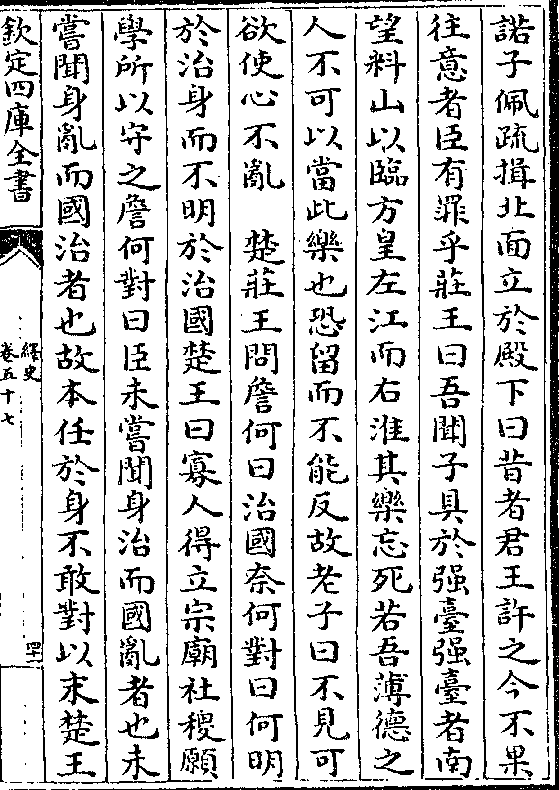 諾子佩疏揖北面立於殿下曰昔者君王許之今不果
往意者臣有罪乎莊王曰吾聞子具於强臺强臺者南
望料山以臨方皇左江而右淮其樂忘死若吾薄德之
人不可以當此樂也恐留而不能反故老子曰不見可
欲使心不亂　楚莊王問詹何曰治國奈何對曰何明
於治身而不明於治國楚王曰寡人得立宗廟社稷願
學所以守之詹何對曰臣未嘗聞身治而國亂者也未
嘗聞身亂而國治者也故本任於身不敢對以末楚王
欽定四庫全書
繹史
卷五十七